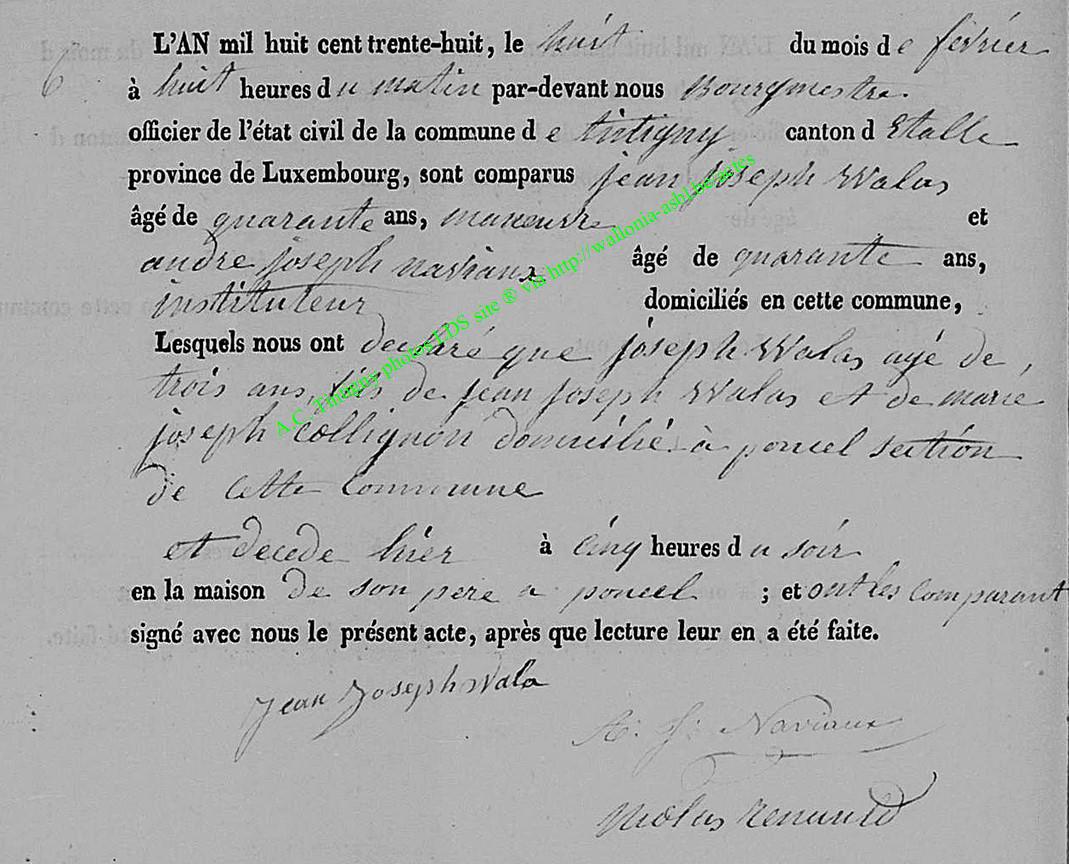 L'AN mil huit cent trente-huit, le huit du mois de février
6 à huit heures du matin par-devant nous Bourgmestre
officier de l'état civil de la commune de tintigny canton d Etalle
province de Luxembourg, sont comparus jean joseph Walas
âgé de quarante ans, maneuvre et
andre joseph naviaux âgé de quarante ans,
instituteur domiciliés en cette commune,
Lesquels nous ont declaré que joseph Walas agé de
trois ans, fils de jean joseph Walas et de marie
joseph Collignon domicilié à poncel section
de cette Commune
et decede hier à cinq heures du soir
en la maison de son pere a poncel ; et ont les Comparant
signé avec nous le présent acte, après que lecture leur en a été faite.
Jean Joseph Wala
A. J. Naviaux
A.C. Tintigny photos LDS site ® via http://wallonia-asbl.be/actes